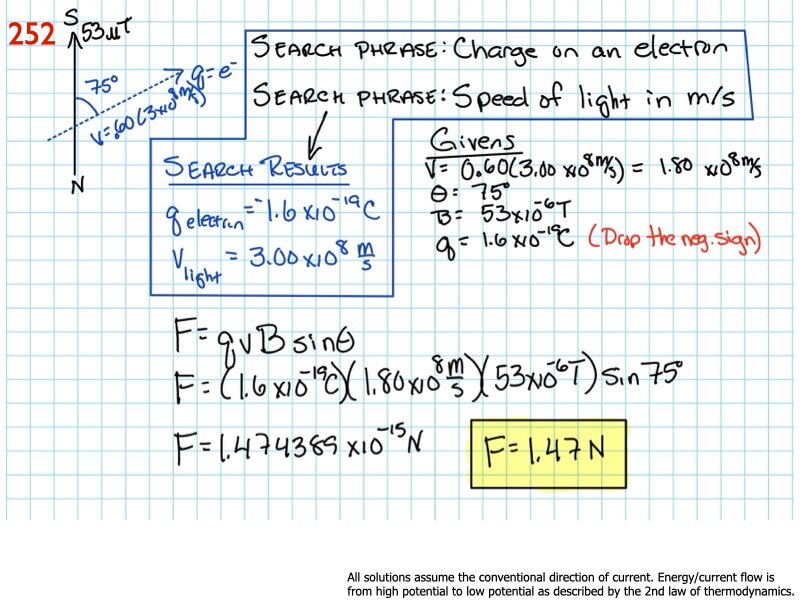 252
S
53μT
75°
q=e⁻
V=.60(3×10⁸m/s)
N
SEARCH PHRASE: Charge on an electron
SEARCH PHRASE: Speed of light in m/s
SEARCH RESULTS
q electron = -1.6×10⁻¹⁹C
V light = 3.00×10⁸ m/s
Givens
V= 0.60(3.00×10⁸m/s) = 1.80 ×10⁸m/s
θ= 75°
B= 53×10⁻⁶T
q= 1.6×10⁻¹⁹C (Drop the neg. sign)
F= qvB sinθ
F= (1.6×10⁻¹⁹C)(1.80×10⁸ m/s)(53×10⁻⁶T) sin 75°
F=1.474389 ×10⁻¹⁵N
F=1.47N
All solutions assume the conventional direction of current. Energy/current flow is
from high potential to low potential as described by the 2nd law of thermodynamics.